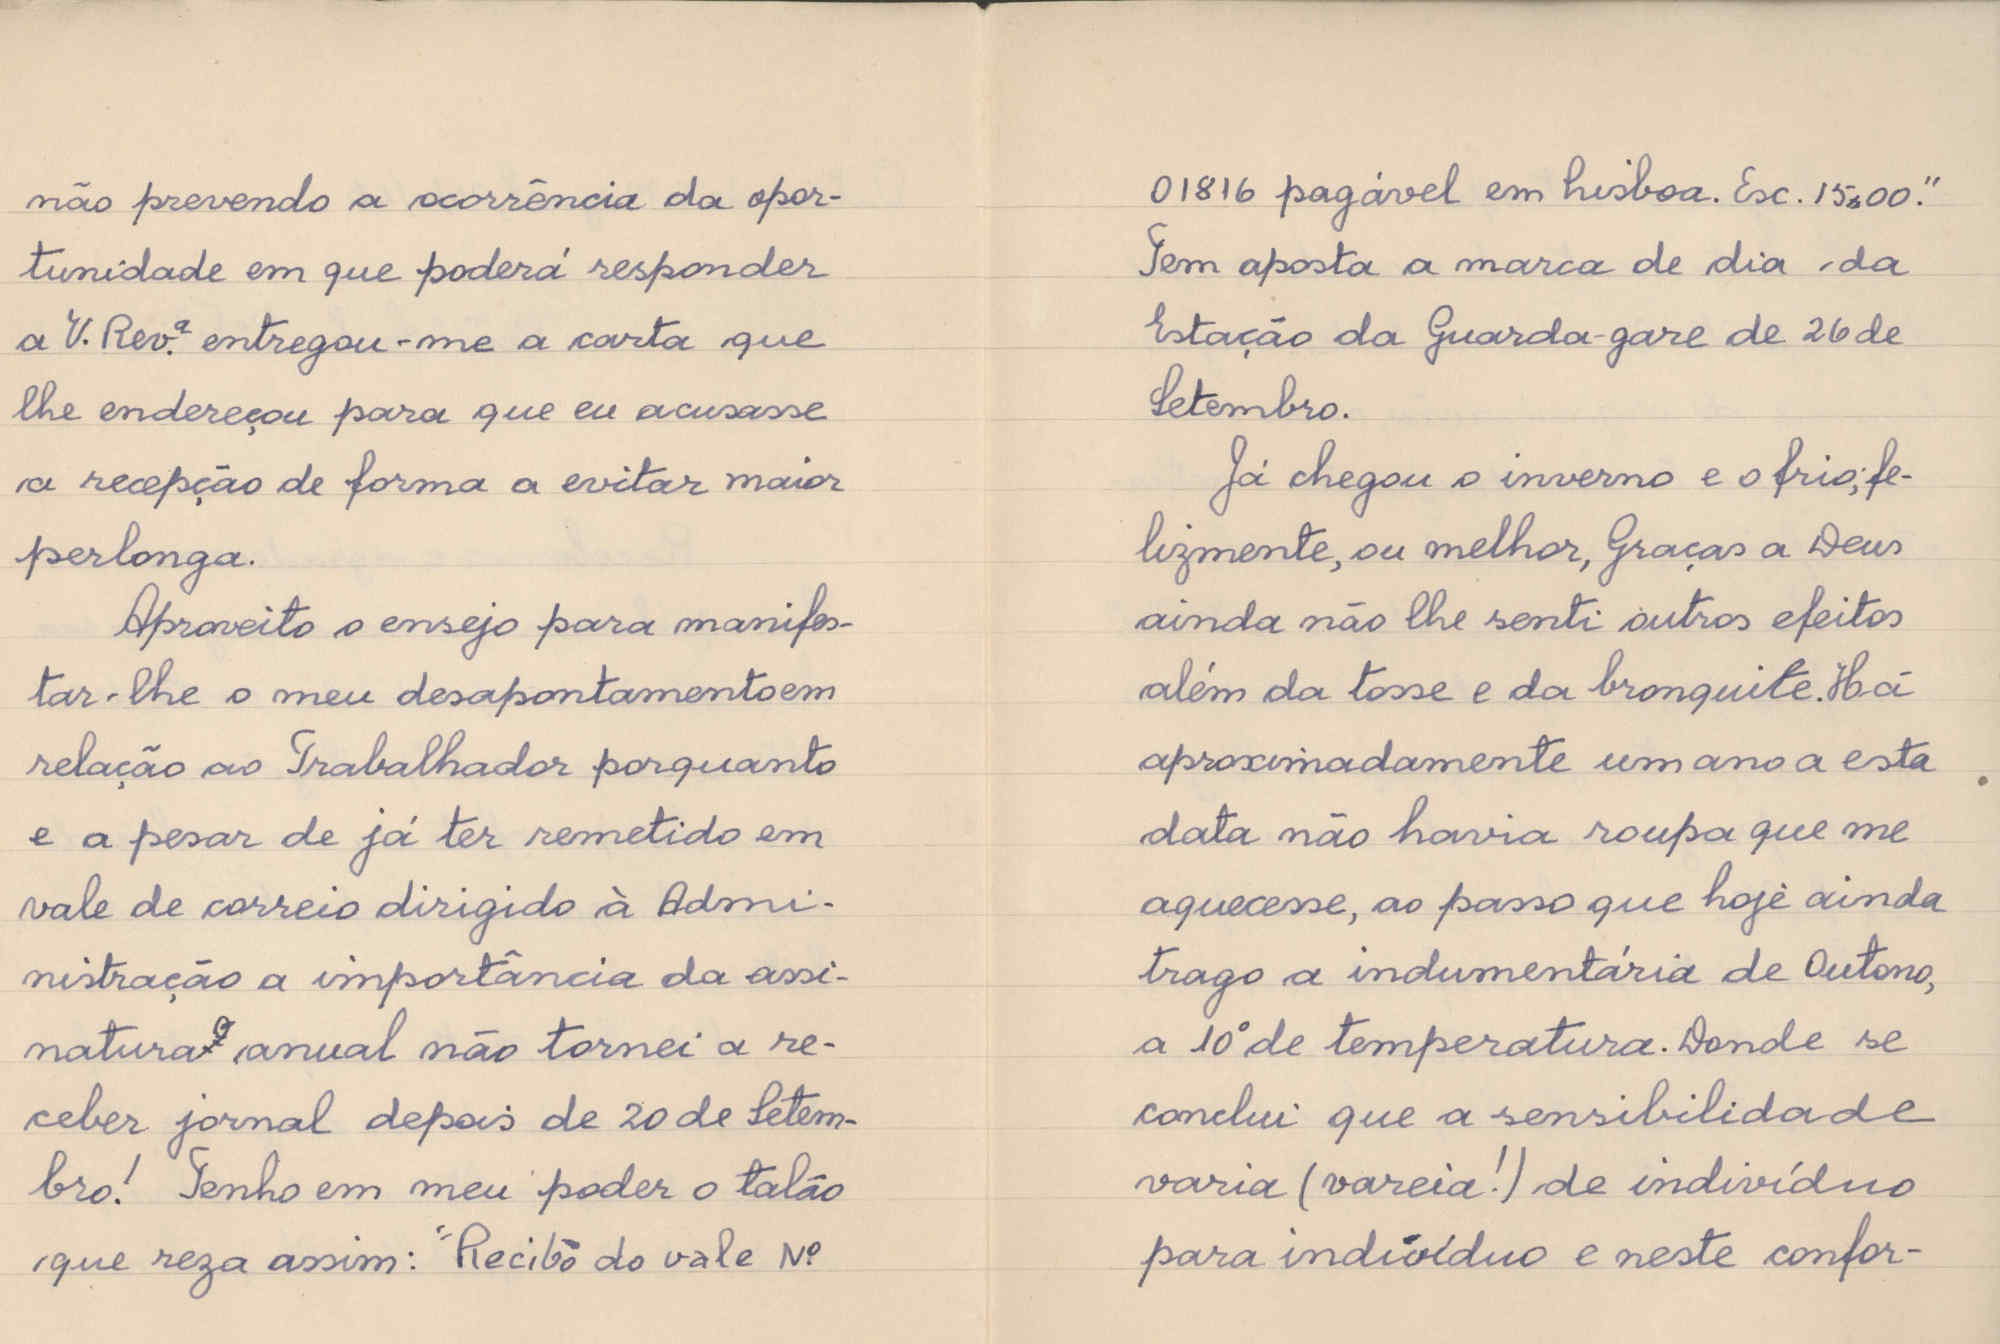 não prevendo a ocorrência da opor-
tunidade em que poderá responder
a V. Rev.ª entregou-me a carta que
lhe endereçou para que eu acusasse
a recepção de forma a evitar maior
perlonga.
Aproveito o ensejo para manifes-
tar-lhe o meu desapontamento em
relação ao Trabalhador porquanto
e a pesar de já ter remetido em
vale de correio dirigido à Admi-
nistração a importância da assi-
natura anual não tornei a re-
ceber jornal depois de 20 de Setem-
bro! Tenho em meu poder o talão
que reza assim: "Recibo do vale Nº
01816 pagável em Lisboa. Esc. 15$00."
Tem aposta a marca de dia da
Estação da Guarda-gare de 26 de
Setembro.
Já chegou o inverno e o frio; fe-
lizmente, ou melhor, Graças a Deus
ainda não lhe senti outros efeitos
além da tosse e da bronquite. Há
aproximadamente um ano a esta
data não havia roupa que me
aquecesse, ao passo que hoje ainda
trago a indumentária de Outono,
a 10° de temperatura. Donde se
conclui que a sensibilidade
varia (vareia!) de indivíduo
para indivíduo e neste confor-